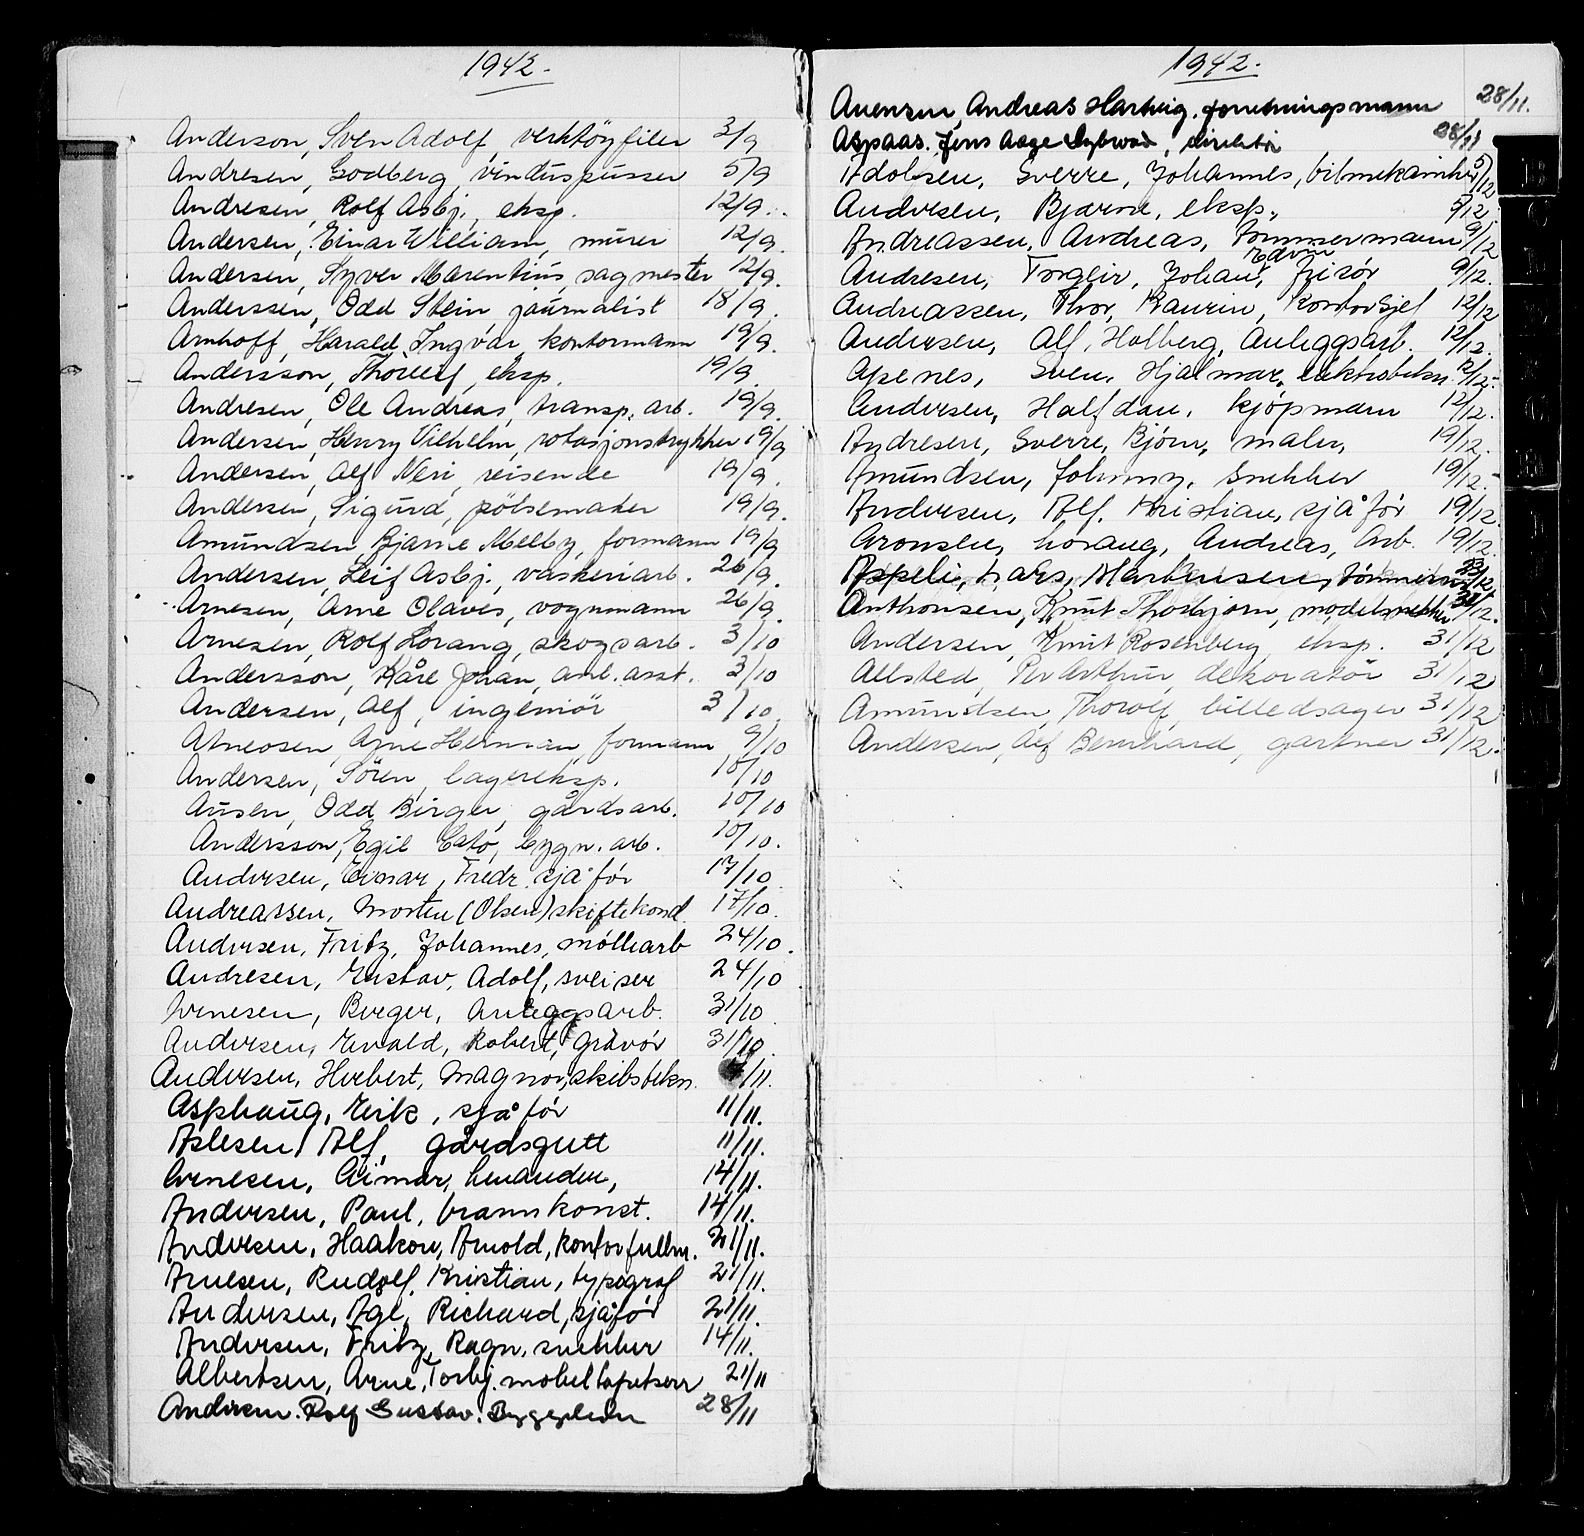 1942.
Anderson, Sven Adolf, verktøyfiler 3/9
Andresen, Godberg, vinduspusser 5/9
Andresen, Rolf Asbj., eksp. 12/9.
Andersen, Einar William, murer 12/9.
Andersen, Syver Marentius, sagmester 12/9.
Anderssen, Odd Stein, journalist 18/9.
Arnhoff, Harald Ingvar, kontormann 19/9.
Andersson, Thorleif, eksp. 19/9.
Andresen, Ole Andreas, transp. arb. 19/9.
Andersen, Henry Vilhelm, rotasjonstrykker 19/9
Andersen, Alf Neri, reisende 19/9.
Andersen, Sigurd, pølsemaker 19/9.
Amundsen Bjarne Melby, formann 19/9
Andersen, Leif Asbj. vaskeriarb. 26/9.
Arnesen, Arne Olaves, vognmann 26/9.
Arnesen, Rolf Lorang, skogsarb. 3/10
Andersson, Kåre Johan, anl. asst. 3/10
Andersen, Alf, ingeniør 3/10.
Arne Herman, formann 9/10
Andersen, Søren, lagereksp. 10/10
Ausen, Odd Birger, gårdsarb. 10/10
Andersson, Egil Cato, bygn. arb. 10/10.
Andersen, Einar, Fredr. sjåför 17/10
Andreassen, Morten (Olsen) skiftekond. 17/10.
Andersen, Fritz, Johannes, møllearb 24/10.
Andresen, Gustav, Adolf, sveiser 24/10
Arnesen, Birger, Anleggsarb. 31/10
Andersen, Ewald, Robert, Gravör 31/10.
Andersen, Herbert, Magnor, skibstekn. /11.
Asphaug, Eirik, sjåför 11/11.
Aslesen, Alf, gårdsgutt 11/11.
Arnesen, Einar, 14/11.
Andersen, Paul, brannkonst. 14/11.
Andersen, Haakon, Arnold, kontorfullm. 21/11.
Arnesen, Rudolf, Kristian, typograf 21/11.
Andersen, Age, Richard, sjåför 21/11.
Andersen, Fritz, Ragn. snekker 14/11.
Albertsen, Arne, Torbj. møbeltapetserer 21/11
Andersen. Rolf Gustav. 28/11
1942.
Andreas Hartvig, forretningsmann 28/11.
Aspaas. Jens Aage direktør 28/11
Adolfsen, Sverre, Johannes, bilmekaniker 5/12
Andersen, Bjarne, eksp., 9/12.
Andreassen, Andreas, Tømmermann 9/12
Edvin
Andresen, Torgeir, Johan, frisör 9/12.
Andreassen, Thor, Laurin, Kontorsjef 12/12
Andersen, Alf, Holberg, Anleggsarb. 12/12.
Apenes, Sven, Hjalmar, elektrotekn. 12/12.
Andersen, Halfdan, kjøpmann 12/12.
Andresen, Sverre, Bjørn, maler, 19/12.
Amundsen, Johnny, snekker 19/12.
Andersen, Alf, Kristian, sjåför 19/12.
Aronsen, Lorang, Andreas, Arb. 19/12.
Aspeli, Lars, Martinsen, tømmerm. /12.
Anthonsen, Knut Thorbjørn, modellsnekker /12.
Andersen, Knut Rosenberg, eksp. 31/12
Allsted, Per Arthur, dekoratør 31/12
Amundsen, Thorolf, billedsager 31/12
Andersen, Alf Bernhard, gartner 31/12.